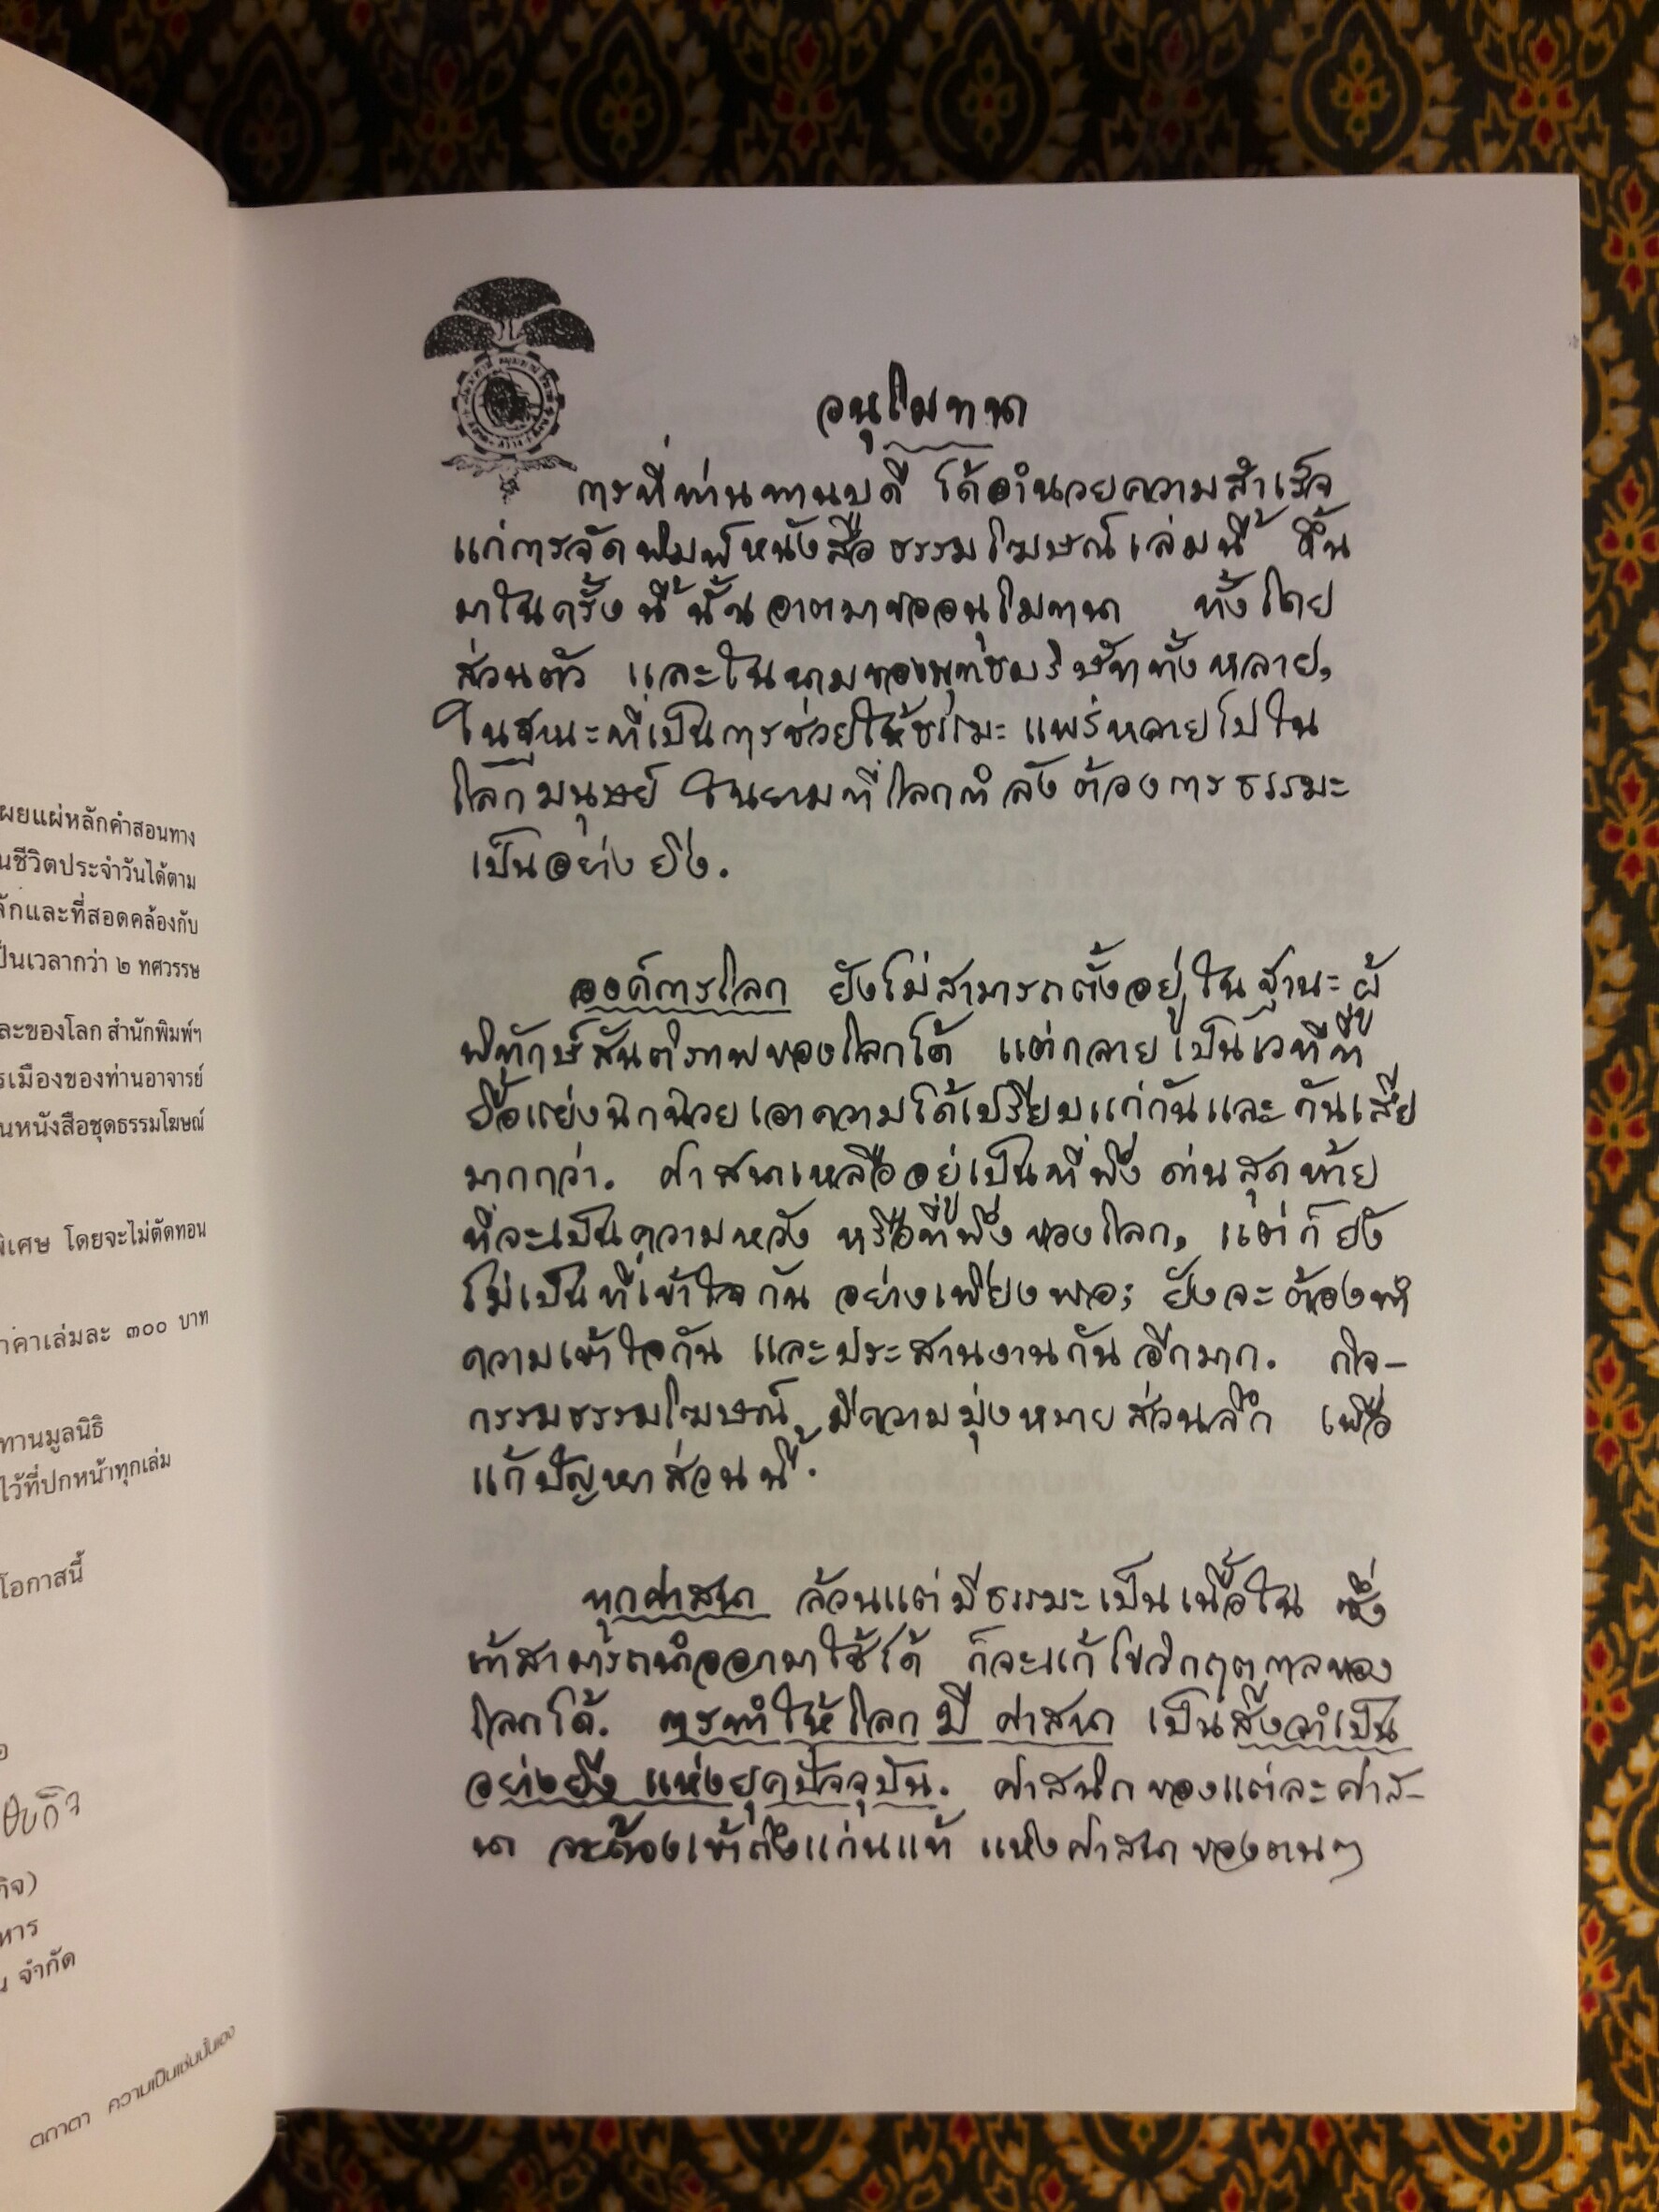 ผยแผ่หลักคำสอนทาง
นชีวิตประจำวันได้ตาม
ลักและที่สอดคล้องกับ
ป็นเวลากว่า ๒ ทศวรรษ
ละของโลก สำนักพิมพ์ฯ
รเมืองของท่านอาจารย์
นหนังสือชุดธรรมโฆษณ์
พิเศษ โดยจะไม่ตัดทอน
าคาเล่มละ ๓๐๐ บาท
ทานมูลนิธิ
ไว้ที่ปกหน้าทุกเล่ม
โอกาสนี้
กิจ)
หาร
น จำกัด
ตถาตา ความเป็นเช่นนั้นเอง
อนุโมทนา
การที่ท่านทานบดี ได้อำนวยความสำเร็จ
แก่การจัดพิมพ์หนังสือธรรมโฆษณ์เล่มนี้ ขึ้น
มาในครั้งนี้นั้น อาตมาขออนุโมทนา ทั้งโดย
ส่วนตัว และในนามของพุทธบริษัททั้งหลาย,
ในฐานะที่เป็นการช่วยให้ธรรมะ แพร่หลายไปใน
โลกมนุษย์ ในยามที่โลกกำลังต้องการธรรมะ
เป็นอย่างยิ่ง.
องค์การโลก ยังไม่สามารถตั้งอยู่ในฐานะผู้
พิทักษ์สันติภาพของโลกได้ แต่กลายเป็นเวทีที่
ยื้อแย่งฉกฉวยเอาความได้เปรียบแก่กันและกันเสีย
มากกว่า. ศาสนาเหลืออยู่เป็นที่พึ่ง ด่านสุดท้าย
ที่จะเป็นความหวัง หรือที่พึ่งของโลก, แต่ก็ยัง
ไม่เป็นที่เข้าใจกัน อย่างเพียงพอ; ยังจะต้องทำ
ความเข้าใจกัน และประสานงานกันอีกมาก. กิจ-
กรรมธรรมโฆษณ์ มีความมุ่งหมายส่วนลึก เพื่อ
แก้ปัญหาส่วนนี้.
ทุกศาสนา ล้วนแต่มีธรรมะเป็นเนื้อใน ซึ่ง
ถ้าสามารถนำออกมาใช้ได้ ก็จะแก้ไขวิกฤตกาลของ
โลกได้. การทำให้โลกมีศาสนา เป็นสิ่งจำเป็น
อย่างยิ่ง แห่งยุคปัจจุบัน. ศาสนิกของแต่ละศาส-
นา จะต้องเข้าถึงแก่นแท้ แห่งศาสนาของตนๆ